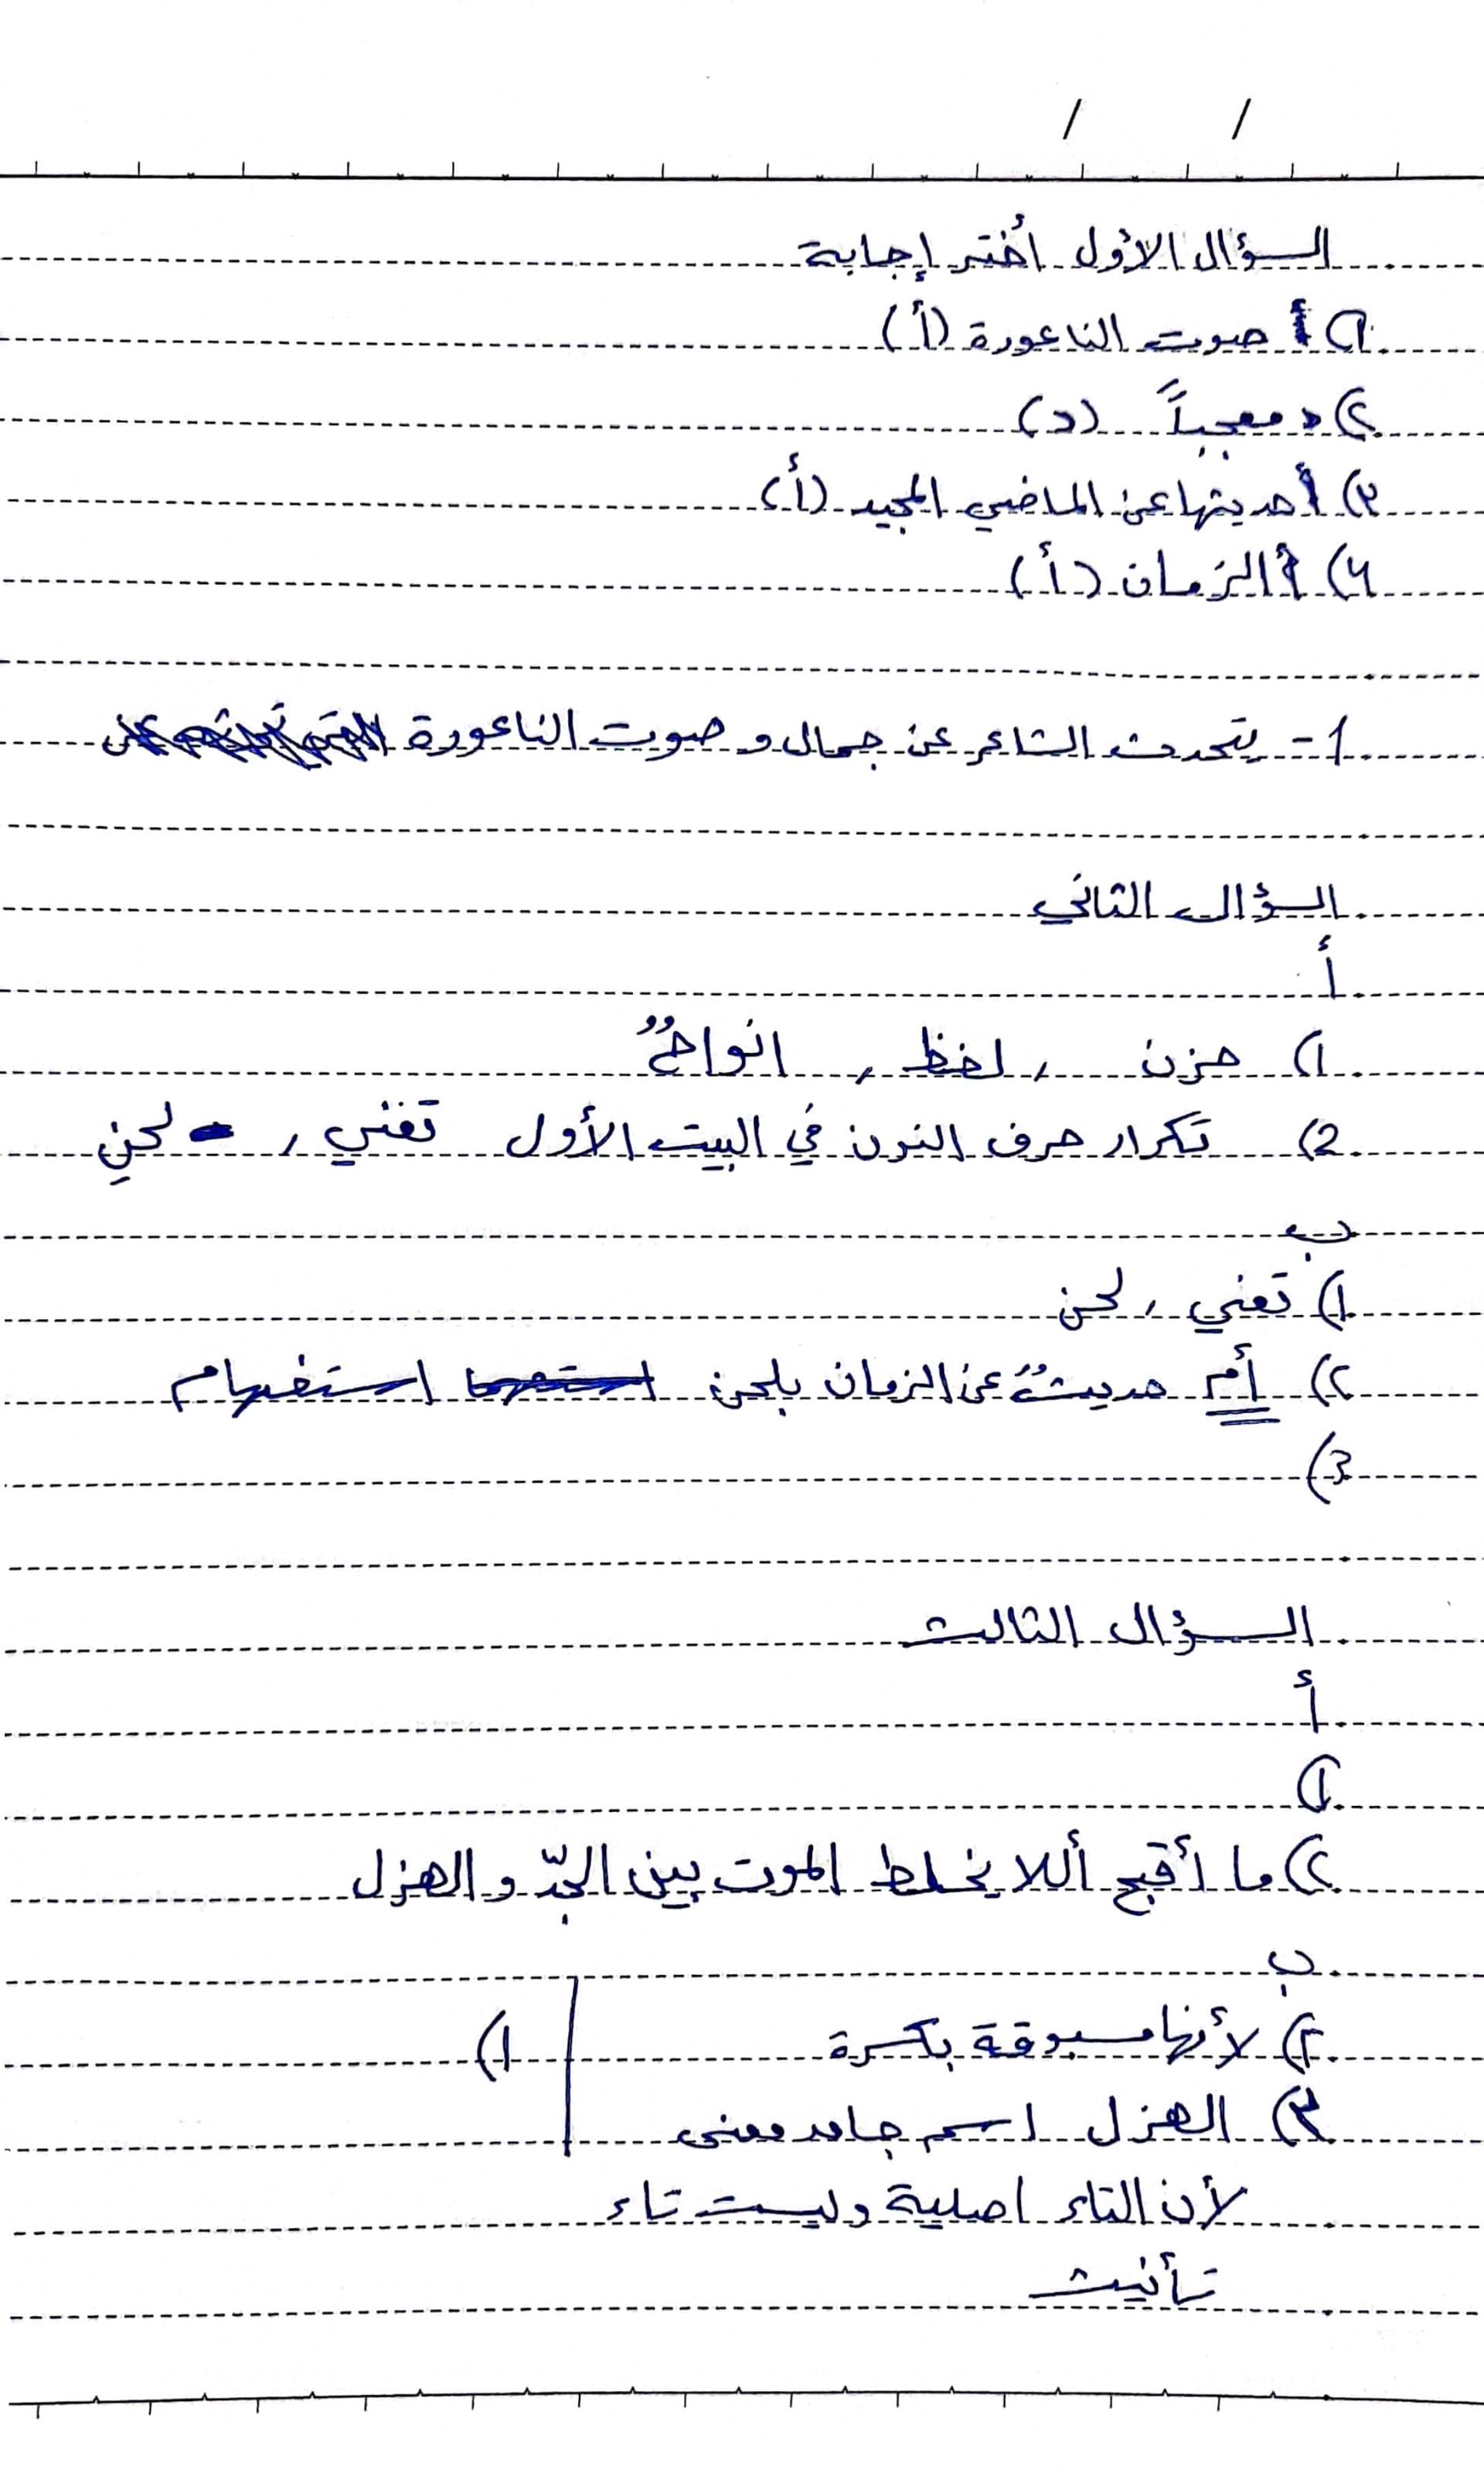 / /
السؤال الأول أختر إجابة
1) صوت الناعورة (أ)
٢) معجباً (د)
٣) أحديثها عن الماضي المجيد (أ)
٤) الزمان (أ)
1- يتحدث الشاعر عن جمال و صوت الناعورة
السؤال الثاني
أ
1) حزن , لفظ , انواحٌ
2) تكرار حرف النون في البيت الأول تغني , لحنِ
ب
1) تغني , لحن
٢) أم حديثٌ عن الزمان بلحن استفهام
3)
السؤال الثالث
أ
1)
٢) ما أقبح أللا يخلط الموت بين الجدّ و الهزل
ب
٢) لأنها مسبوقة بكسرة 1)
٣) الهزل اسم جامد معنى
لأن التاء اصلية وليست تاء
تأنيث